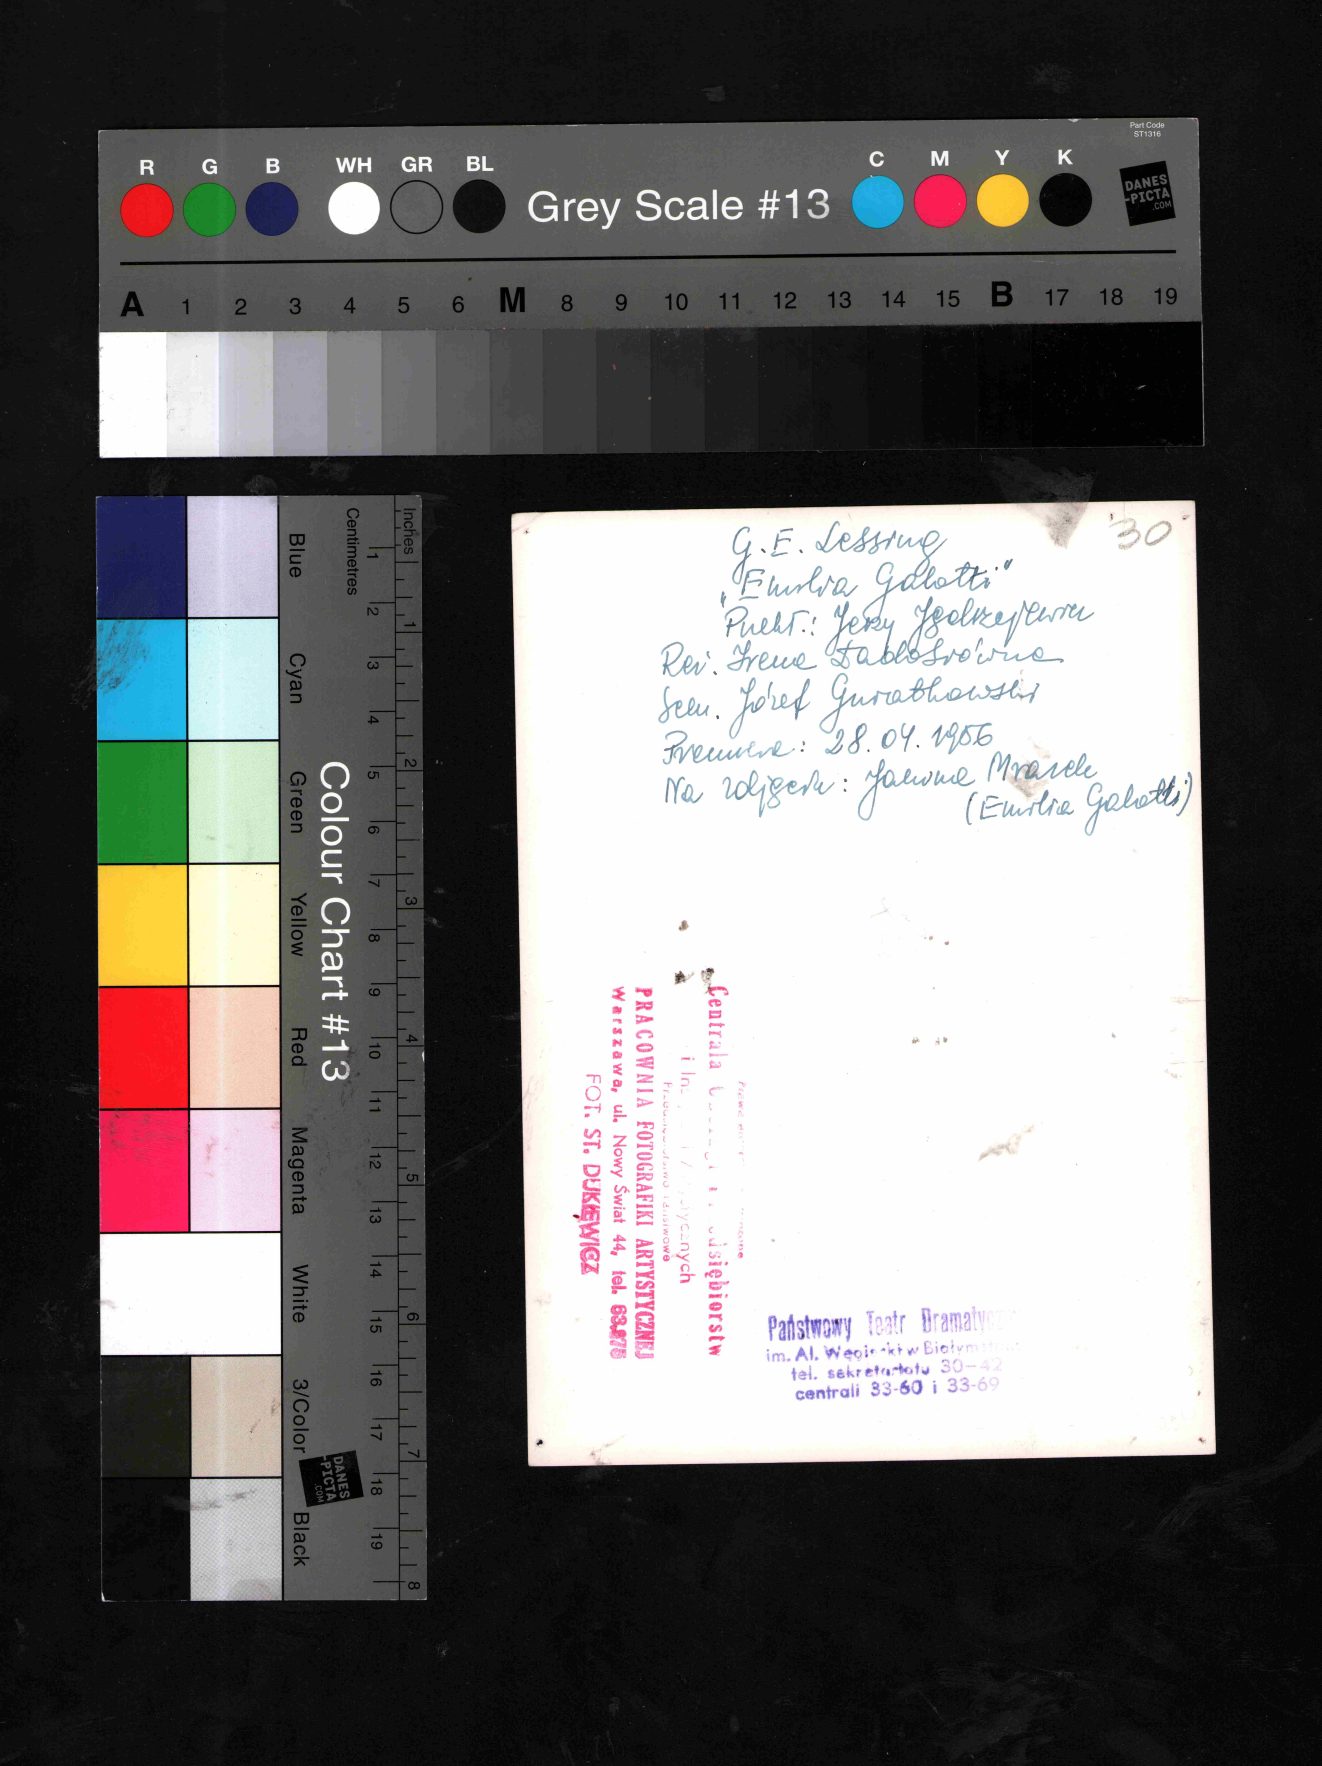 Part Code
ST1316
R G B WH GR BL
Grey Scale #13
C M Y K
DANES
-PICTA
.COM
A 1 2 3 4 5 6 M 8 9 10 11 12 13 14 15 B 17 18 19
Inches
1 2 3 4 5 6 7 8
Centimetres
1 2 3 4 5 6 7 8 9 10 11 12 13 14 15 16 17 18 19
Colour Chart #13
Blue
Cyan
Green
Yellow
Red
Magenta
White
3/Color
Black
DANES
-PICTA
.COM
30
G. E. Lessing
„Emilia Galotti"
Przekł.: Jerzy
Reż. Irena
Scen. Józef
Premiera: 28.04.1956
Na zdjęciu: Janina Mrazek
(Emilia Galotti)
Centrala
i
Państwowe
PRACOWNIA FOTOGRAFIKI ARTYSTYCZNEJ
Warszawa, ul. Nowy Świat 44, tel.
FOT. ST. DUKIEWICZ
Państwowy Teatr
im. Al. w
tel. sekretariatu 30-42
centrali 33-60 i 33-69